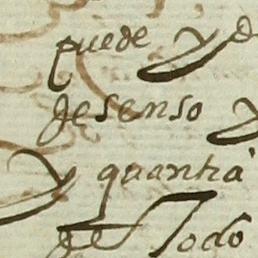 puede y d
desenso y
y quantia
de Todo